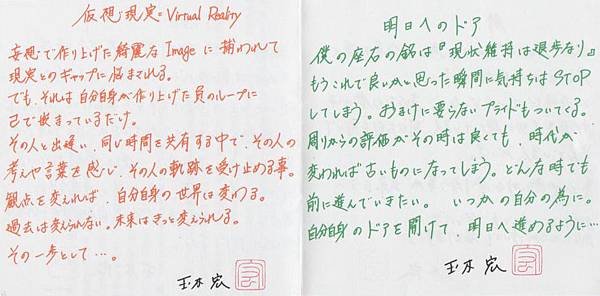 仮想現実=Virtual Reality
妄想で作り上げた綺麗なImageに捕われて
現実とのギャップに悩まされる。
でも、それは自分自身が作り上げた負のループに
己で嵌まっているだけ。
その人と出逢い、同じ時間を共有する中で、その人の
考えや言葉を感じ、その人の軌跡を受け止める事。
観点を変えれば、自分自身の世界は変わる。
過去は変えられない。未来はきっと変えられる。
その一歩として…。
玉木宏
明日へのドア
僕の座右の銘は『現状維持は退歩なり』
もうこれで良いかと思った瞬間に気持ちはSTOP
してしまう。おまけに要らないプライドもついてくる。
周りからの評価がその時は良くても、時代が
変われば古いものになってしまう。どんな時でも
前に進んでいきたい。いつかの自分の為に。
自分自身のドアを開けて、明日へ進めるように…
玉木宏